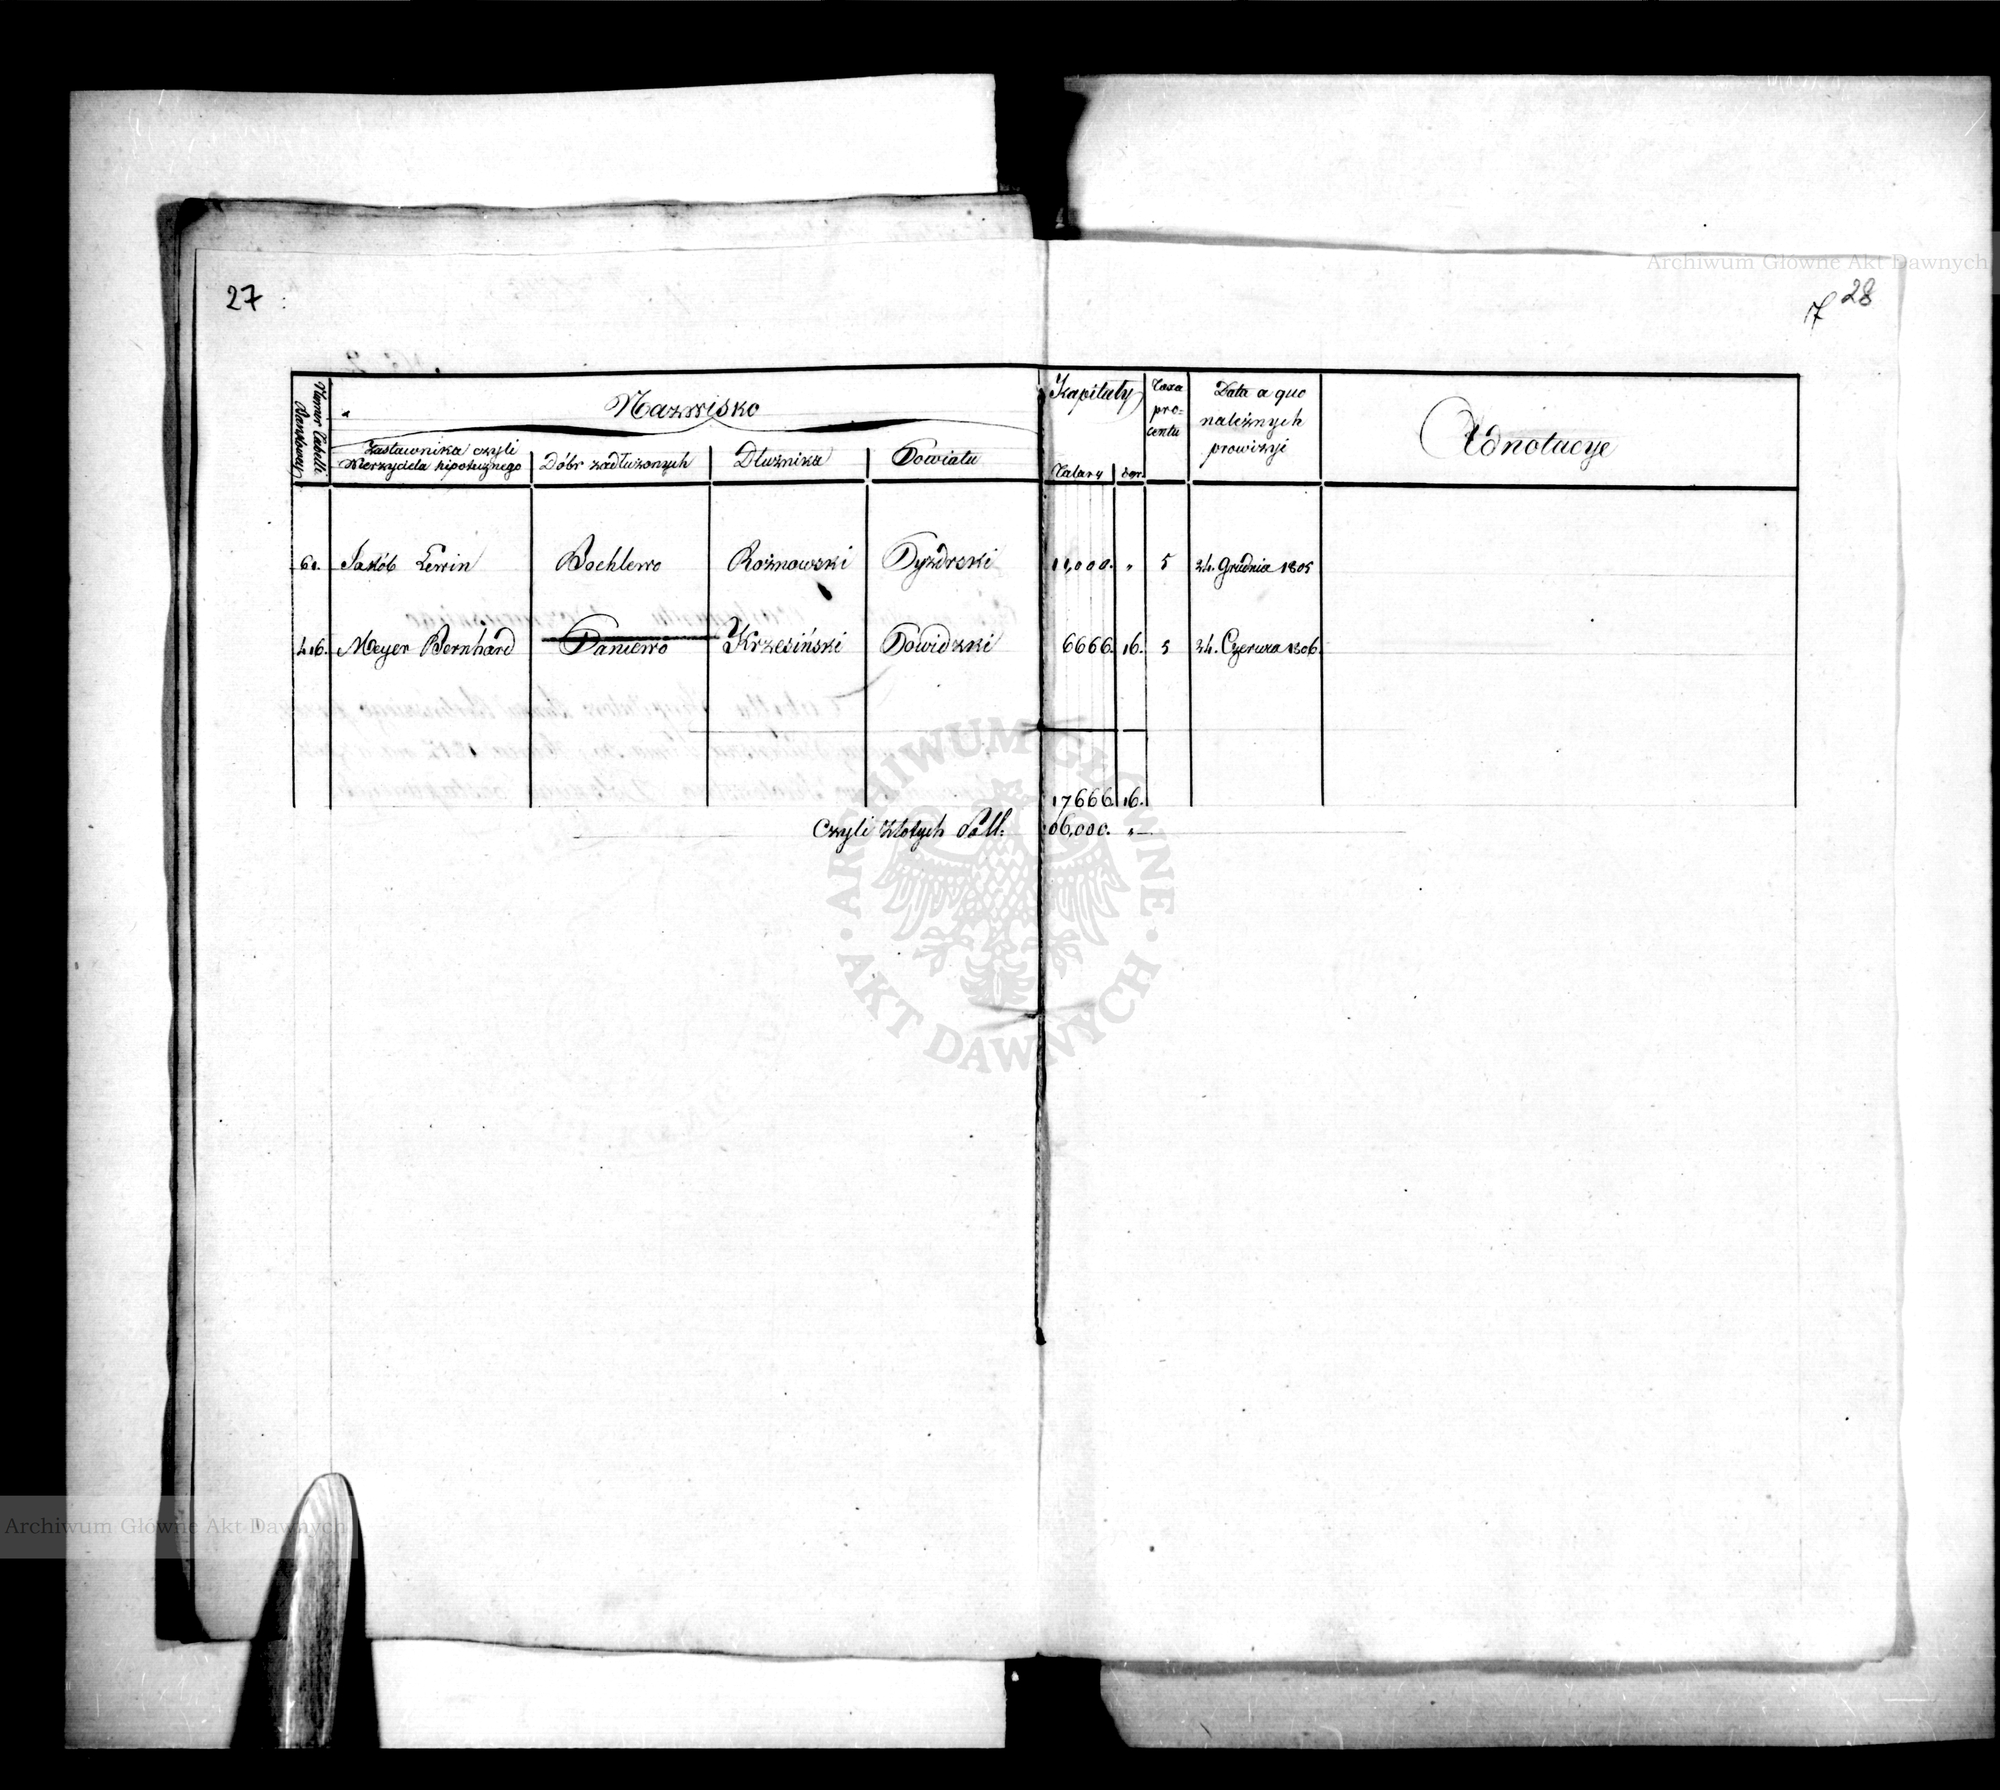 27
28
17
Numer Tabelli Bankowey
Nazwisko
Zastawnika czyli Wierzyciela hipotecznego
Dóbr zadłużonych
Dłużnika
Powiatu
Kapitały
Talary
dgr.
Taxa pro= centu
Data a quo należnych prowizyi
Adnotacye
60. Jakób Lewin Bochlewo Rożnowski Pyzdrski 11,000. " 5 24. Grudnia 1805
416. Meyer Bernhard Paniewo Krzesiński Powidzki 6666. 16. 5 24. Czerwca 1806.
17666. 16.
Czyli złotych Poll: 106,000. "
ARCHIWUM GŁÓWNE AKT DAWNYCH
Archiwum Główne Akt Dawnych
Archiwum Główne Akt Dawnych